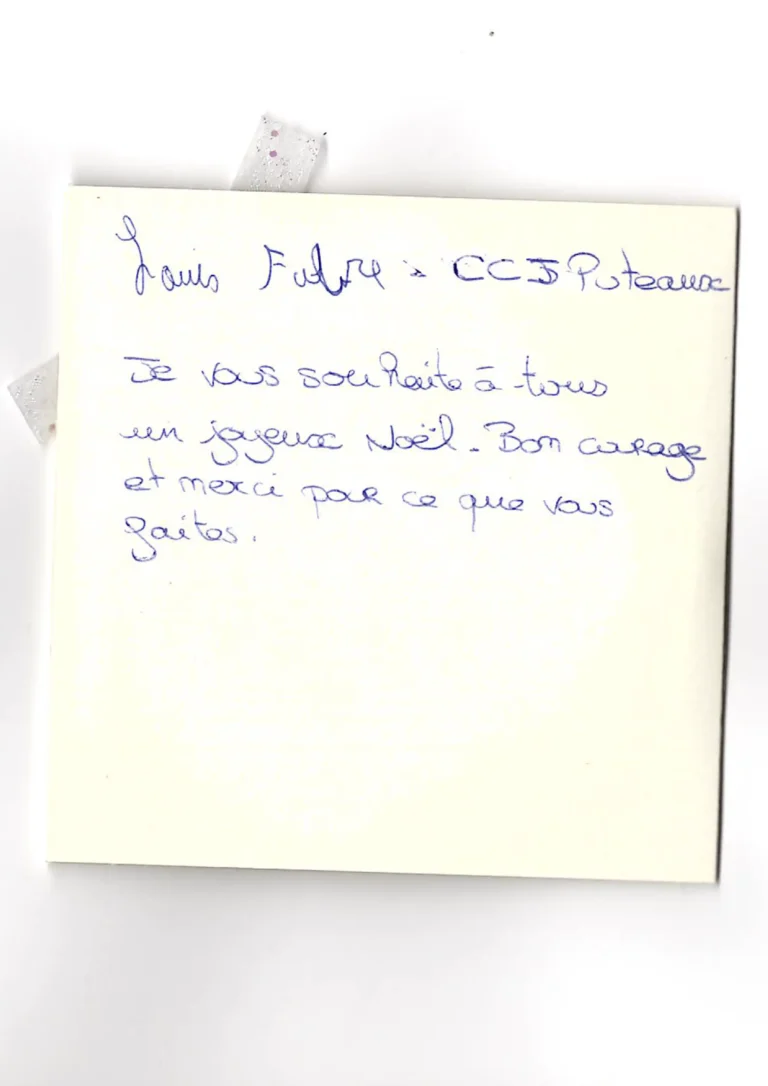 Louis Fabre - CCJ Puteaux
Je vous souhaite à tous
un joyeux Noël. Bon courage
et merci pour ce que vous
faites.